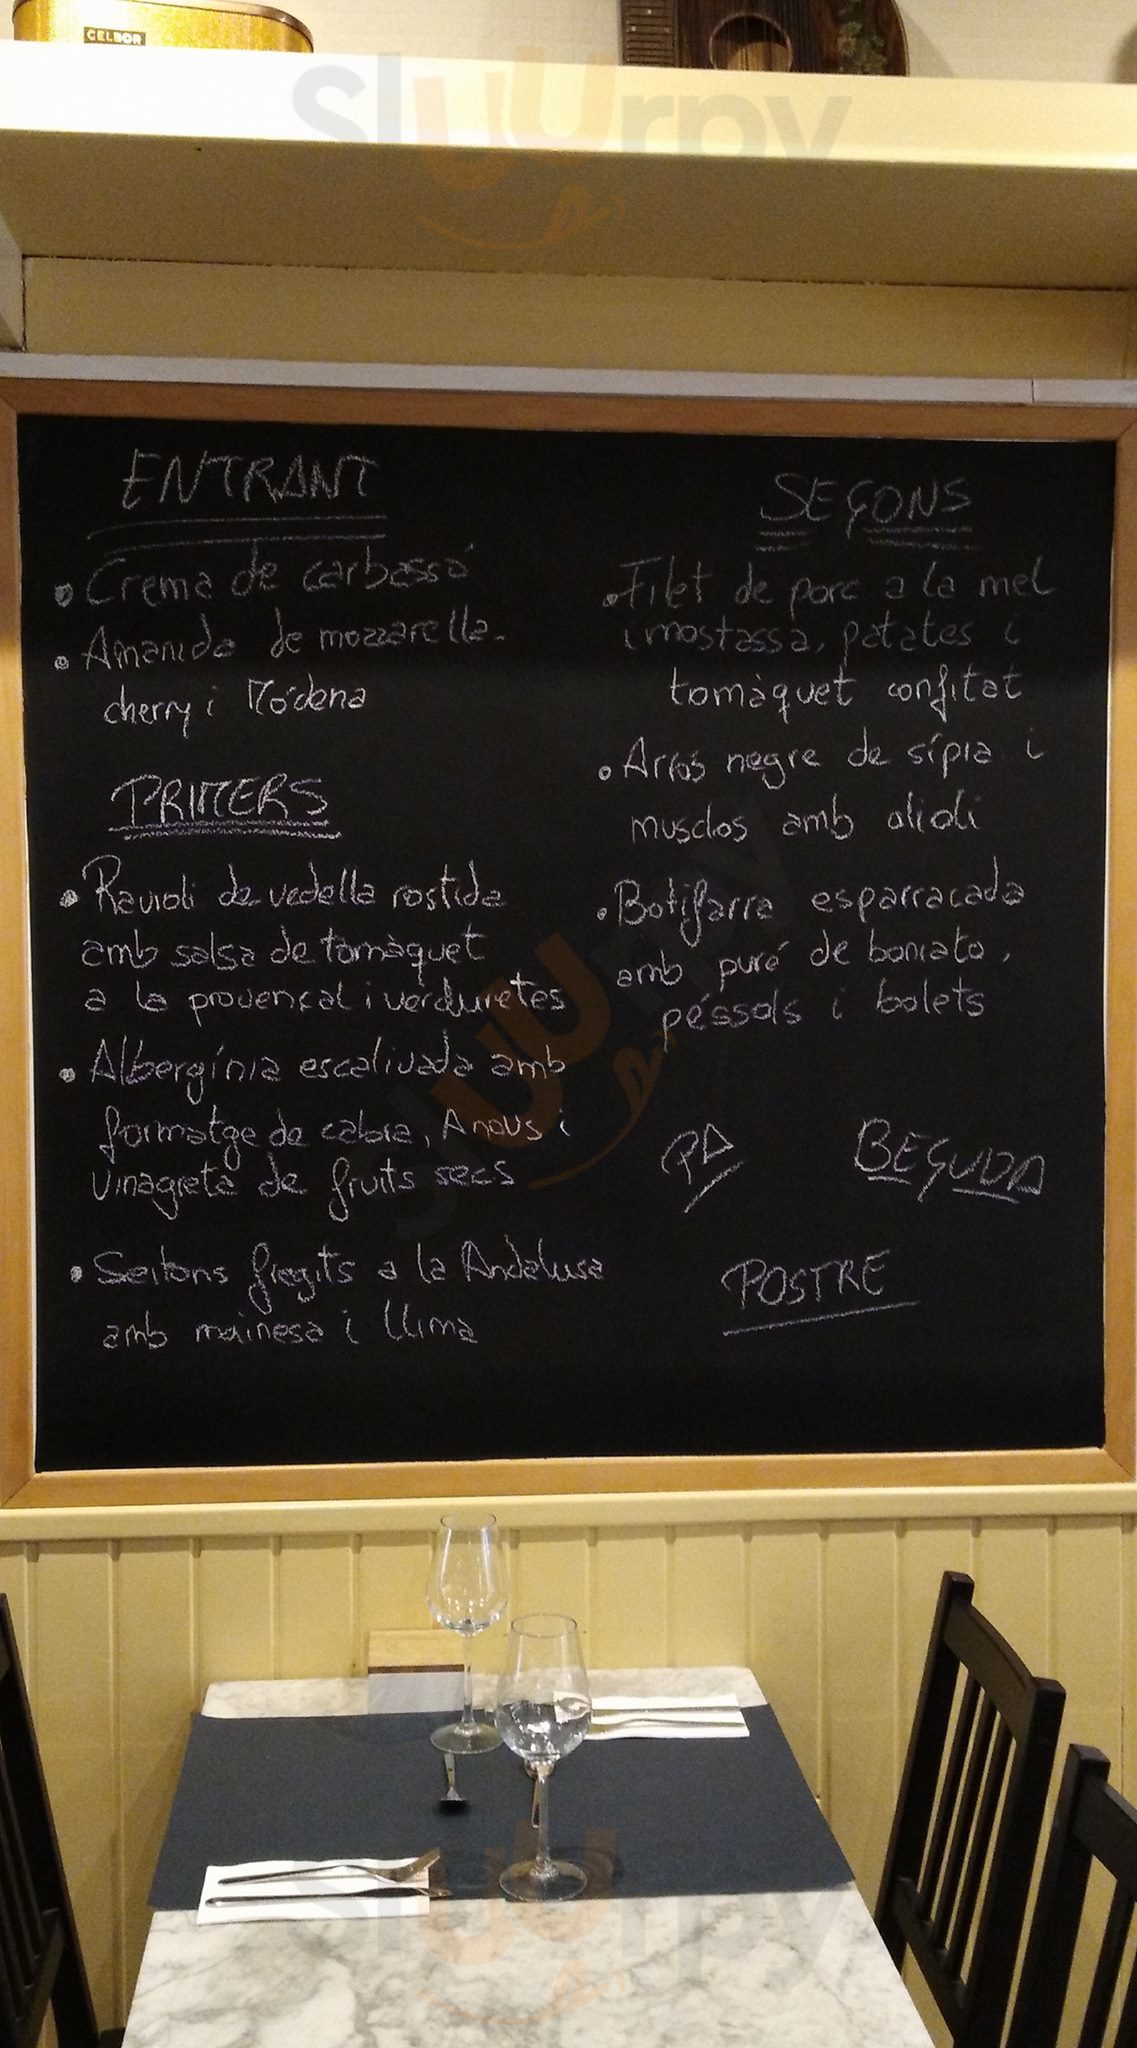 CELBOR
Sluurpy
ENTRANT
• Crema de carbassó
• Amanida de mozzarella,
cherry i Mòdena
PRIMERS
• Ravioli de vedella rostida
amb salsa de tomàquet
a la provençal i verduretes
• Albergínia escalivada amb
formatge de cabra, Anous i
vinagreta de fruits secs
• Seitons fregits a la Andalusa
amb mainesa i llima
SEÇONS
• Filet de porc a la mel
i mostassa, patates i
tomàquet confitat
• Arròs negre de sípia i
musclos amb alioli
• Botifarra esparracada
amb puré de boniato,
péssols i bolets
PA
BEÇUDA
POSTRE
Sluurpy
Sluurpy